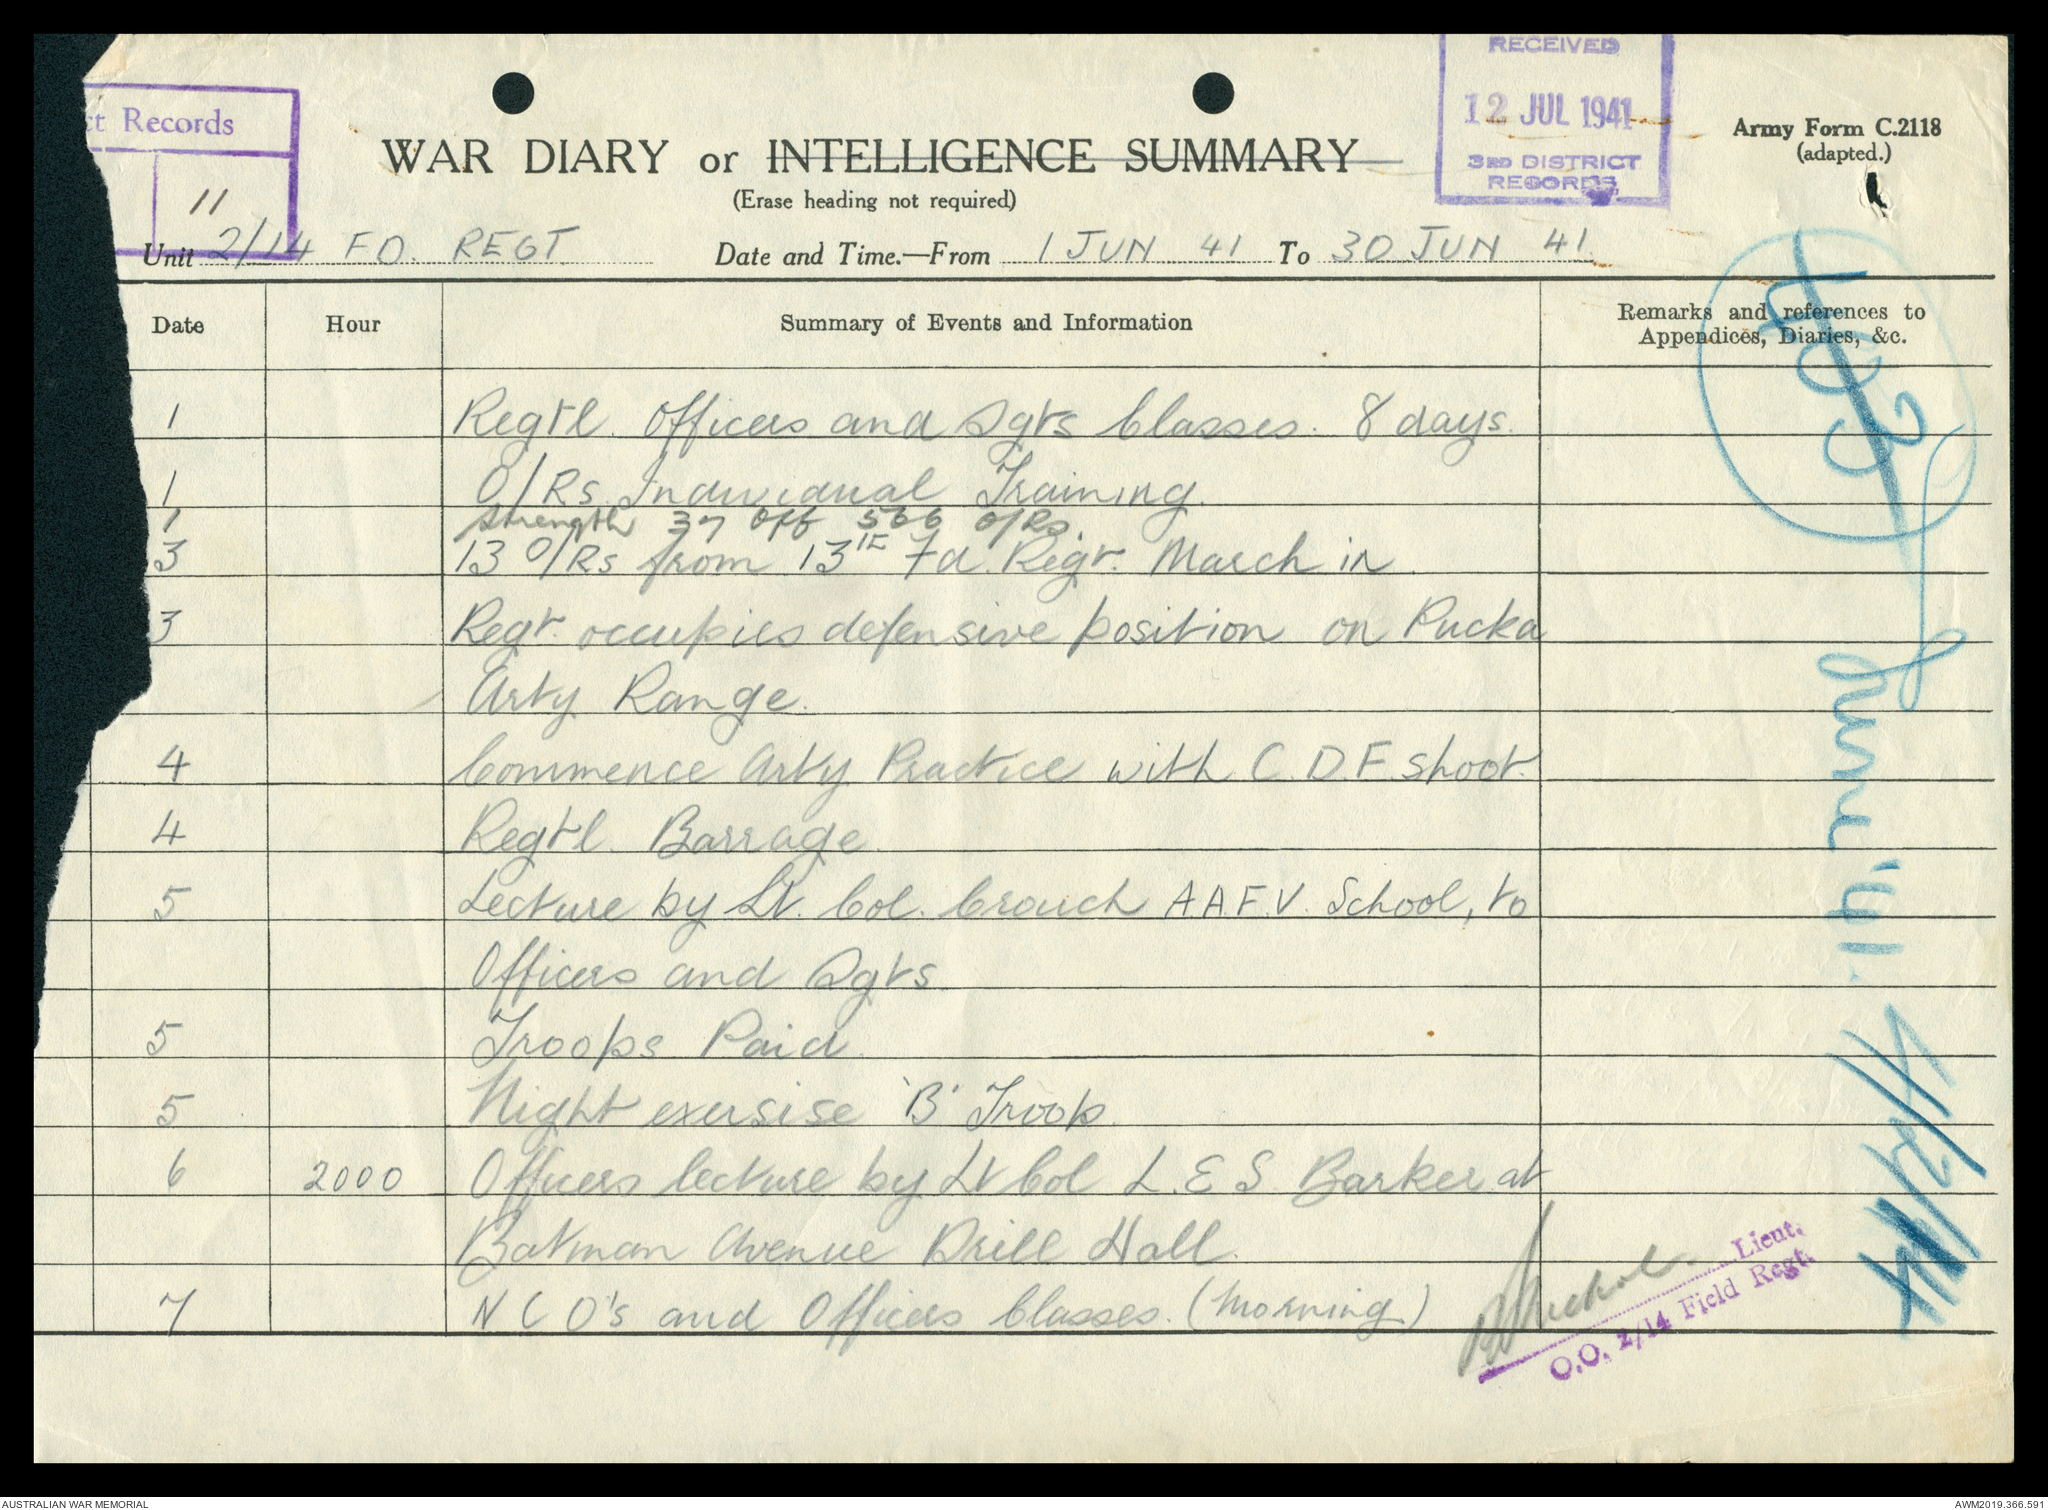 ct Records
11
RECEIVED
12 JUL 1941
3RD DISTRICT
RECORDS
Army Form C.2118
(adapted.)
WAR DIARY or INTELLIGENCE SUMMARY
(Erase heading not required)
Unit 2/14 FD. REGT. Date and Time.—From 1 JUN 41 To 30 JUN 41
Date Hour Summary of Events and Information Remarks and references to
Appendices, Diaries, &c.
1 Regtl. Officers and Sgts Classes. 8 days.
1 O/Rs Individual Training.
1 Strength 37 Off 566 O/Rs.
3 13 O/Rs from 13th Fd. Regt. March in.
3 Regt. occupies defensive position on Pucka
Arty Range.
4 Commence Arty Practice with C.D.F. shoot.
4 Regtl. Barrage.
5 Lecture by Lt. Col. Crouch A.A.F.V. School, to
Officers and Sgts.
5 Troops Paid.
5 Night exersise 'B' Troop.
6 2000 Officers lecture by Lt Col L.E.S. Barker at
Batman Avenue Drill Hall.
7 N C O's and Officers Classes. (Morning)
Lieut.
O.O. 2/14 Field Regt.
403
June '41.
4/2/14
AUSTRALIAN WAR MEMORIAL
AWM2019.366.591